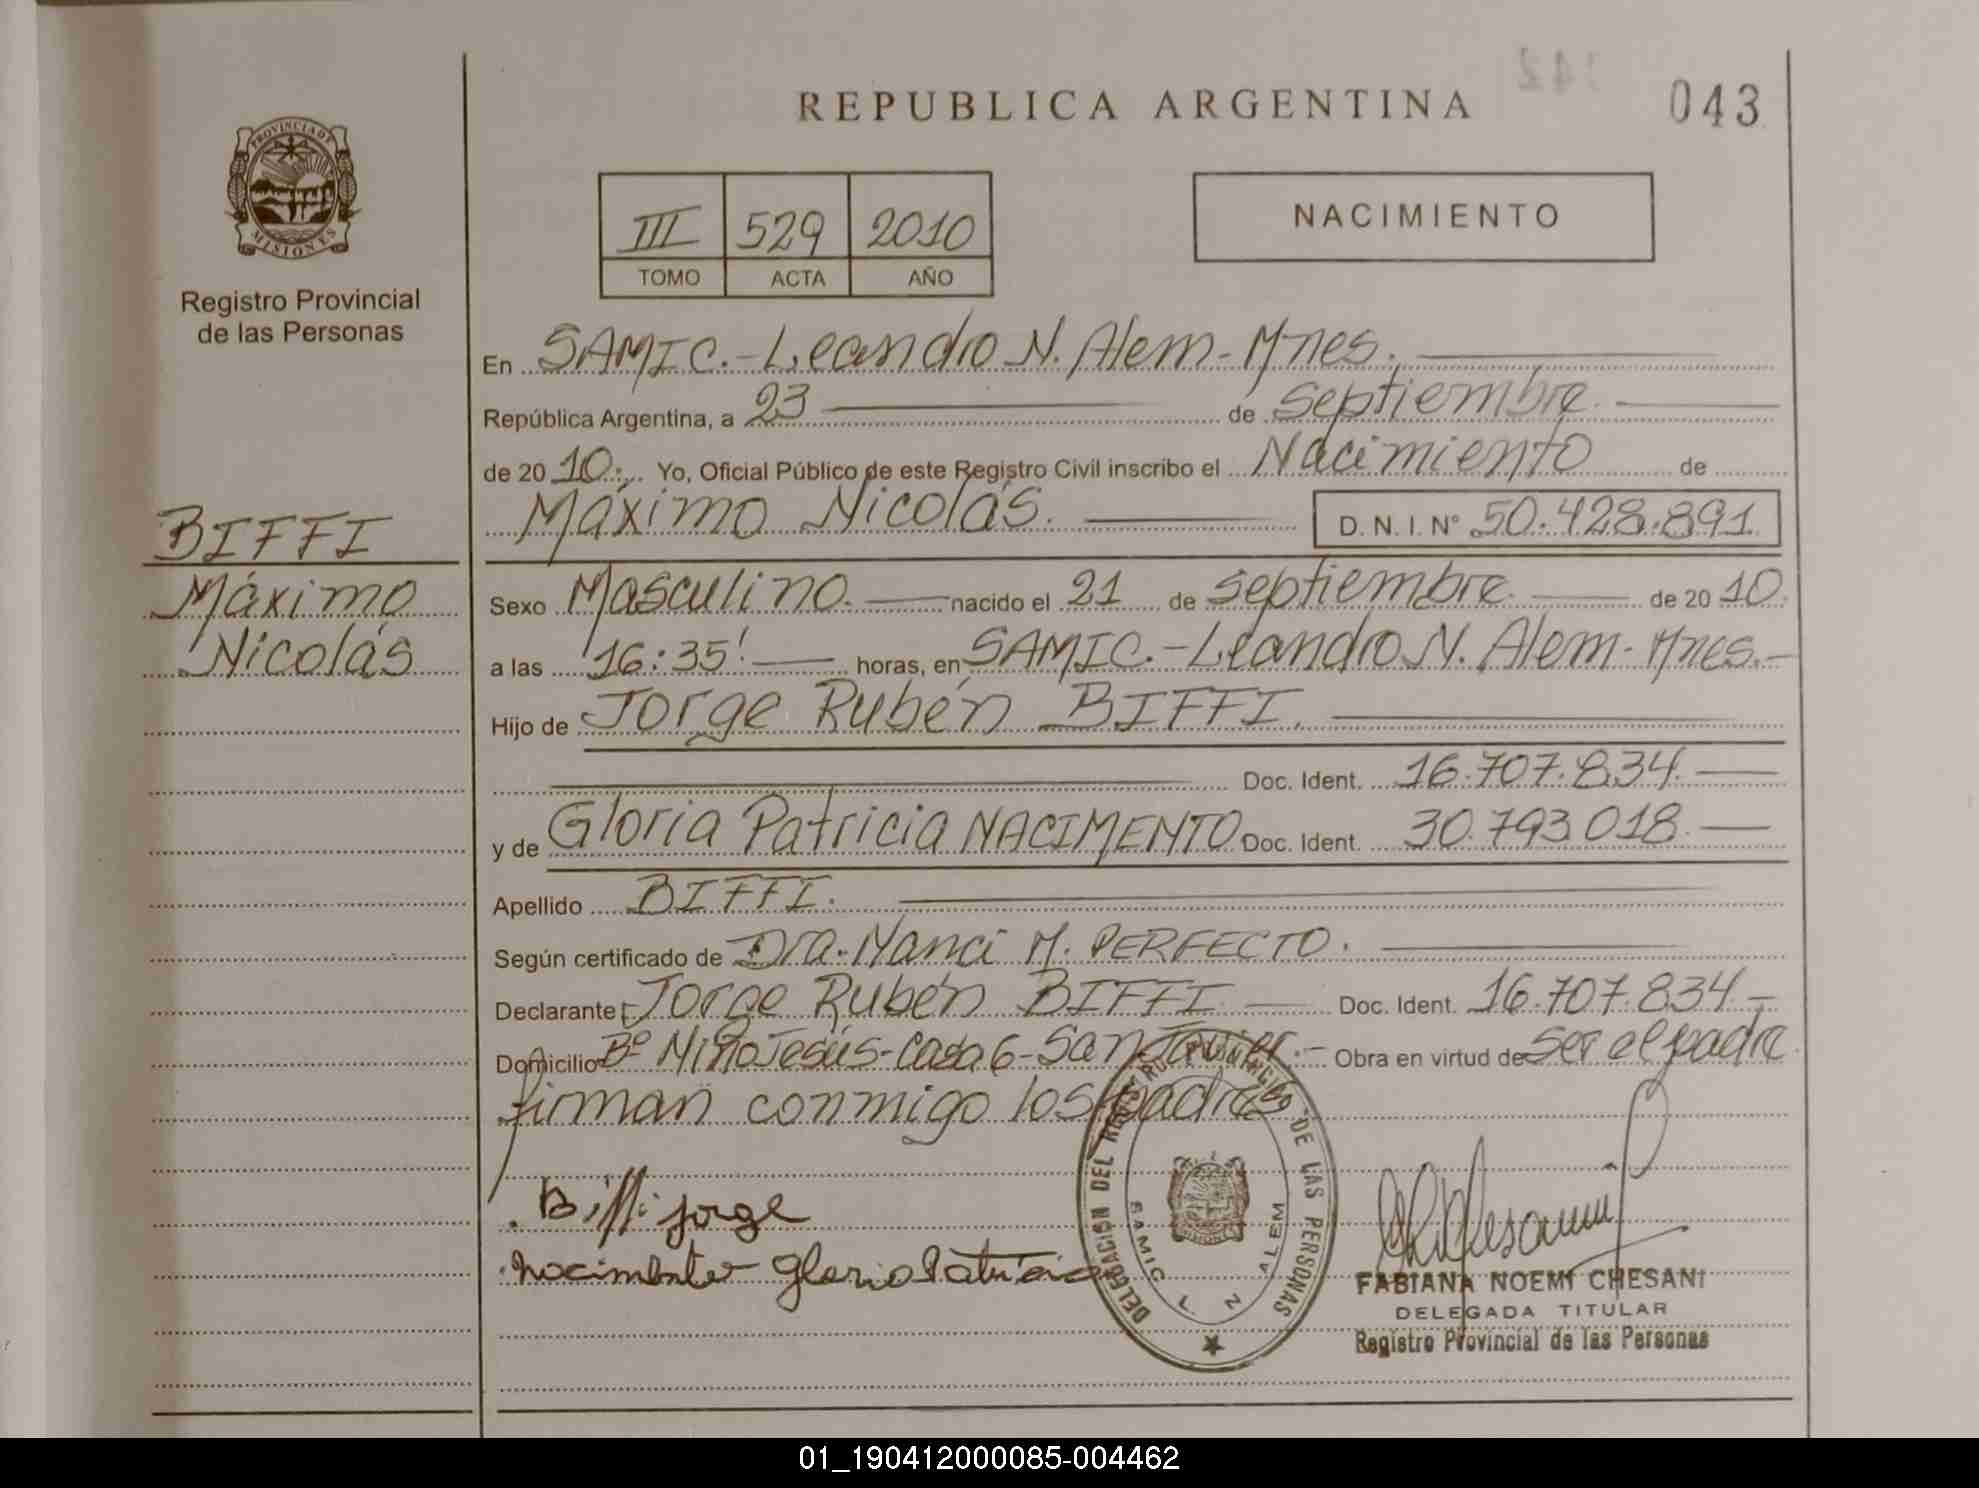 REPUBLICA ARGENTINA
043
PROVINCIA DE
MISIONES
Registro Provincial
de las Personas
III 529 2010
TOMO ACTA AÑO
NACIMIENTO
En SAMIC.-Leandro N. Alem-Mnes.
República Argentina, a 23 de septiembre
de 2010. Yo, Oficial Público de este Registro Civil inscribo el Nacimiento de
Máximo Nicolás. D.N.I. Nº 50.428.891
BIFFI
Máximo
Nicolás
Sexo Masculino. nacido el 21 de septiembre de 2010.
a las 16:35' horas, en SAMIC.-Leandro N. Alem-Mnes.-
Hijo de Jorge Rubén BIFFI.
Doc. Ident. 16.707.834.
y de Gloria Patricia NACIMENTO Doc. Ident. 30.793.018.
Apellido BIFFI.
Según certificado de Dra. Nanci M. PERFECTO.
Declarante Jorge Rubén BIFFI Doc. Ident. 16.707.834.-
Domicilio Bº Niño Jesús-Casa 6-San Javier.- Obra en virtud de ser el padre
firman conmigo los padres.
Biffi Jorge
Nacimento Gloria Patricia
DELEGACION DEL REGISTRO PROVINCIAL DE LAS PERSONAS
SAMIC L. N ALEM
FABIANA NOEMI CHESANI
DELEGADA TITULAR
Registro Provincial de las Personas
01_190412000085-004462